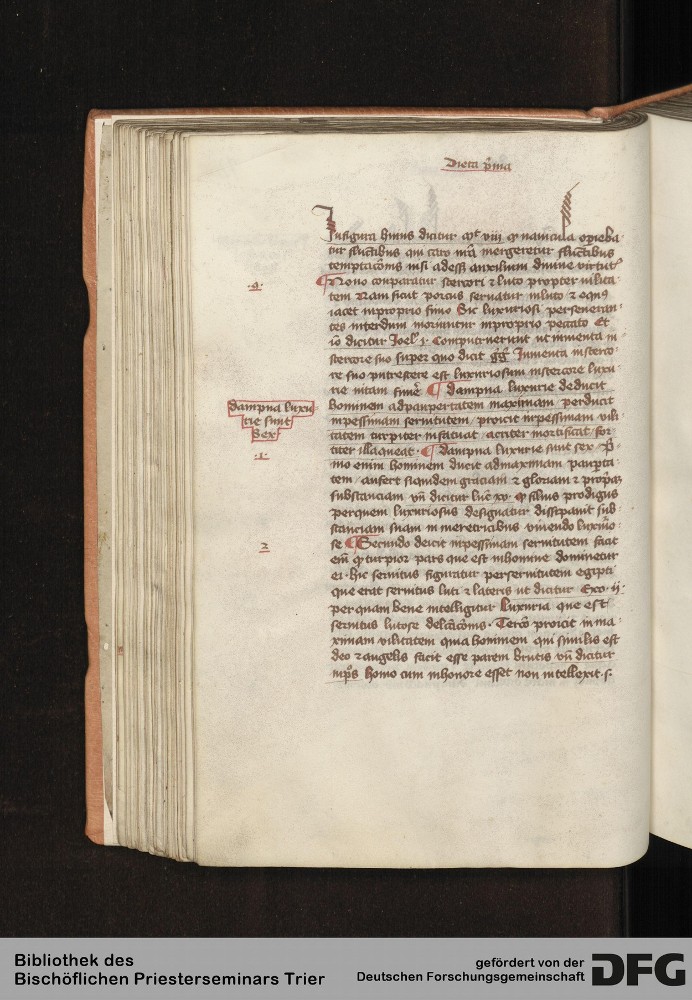 Dieta p̄ma
In figura huius dicitur mt̄ viii ꝙ nauicula opieba
tur fluctibus qui caro nr̄a mergeretur fluctibus
temptacōnis nisi adesset auxilium diuine virtutꝭ
.9.
¶ Nono conparatur stercori ⁊ luto propter vilita
tem Nam sicut porcus seruatur in luto ⁊ equꝰ
iacet in proprio fimo Sic luxuriosi perseueran
tes interdum moriuntur in proprio peccato Et
iō dicitur Joel .j. Computruerunt ut iumenta in
stercore suo super quo dicit gg̅ Jumenta in sterco
re suo putrescere est luxuriosum in stercore luxu
rie uitam finire ¶ dampna luxurie deducit
dampna luxu
rie sunt
Sex
hominem ad paupertatem maximam perducit
in pessimam seruitutem / proicit in pessimam vili
tatem turpiter infatuat / acriter mortificat / for
titer illaqueat ¶ Dampna luxurie sunt sex P̄
.1.
mo enim hominem ducit ad maximam paup̄ta
tem / aufert siquidem graciam ⁊ gloriam ⁊ propͥaꝫ
substanciam vn̄ dicitur luc̄ xv. ꝙ filius prodigus
per quem luxuriosus designatur dissipauit sub
stanciam suam in meretricibus viuendo luxurio
2
se ¶ Secundo deicit in pessimam seruitutem facit
em̄ ꝙ turpior pars que est in homine dominetur
ei. hic seruitus figuratur per seruitutem egipti
que erat seruitus luti ⁊ lateris ut dicitur Exo. ij.
per quam bene intelligitur Luxuria que est
seruitus lutose delectacōnis. Tercō proicit in ma
ximam vilitatem quia hominem qui similis est
deo ⁊ angelis facit esse parem brutis vn̄ dicitur
in pꝰs homo cum in honore esset non intellexit .s.
Bibliothek des
Bischöflichen Priesterseminars Trier
gefördert von der
Deutschen Forschungsgemeinschaft
DFG